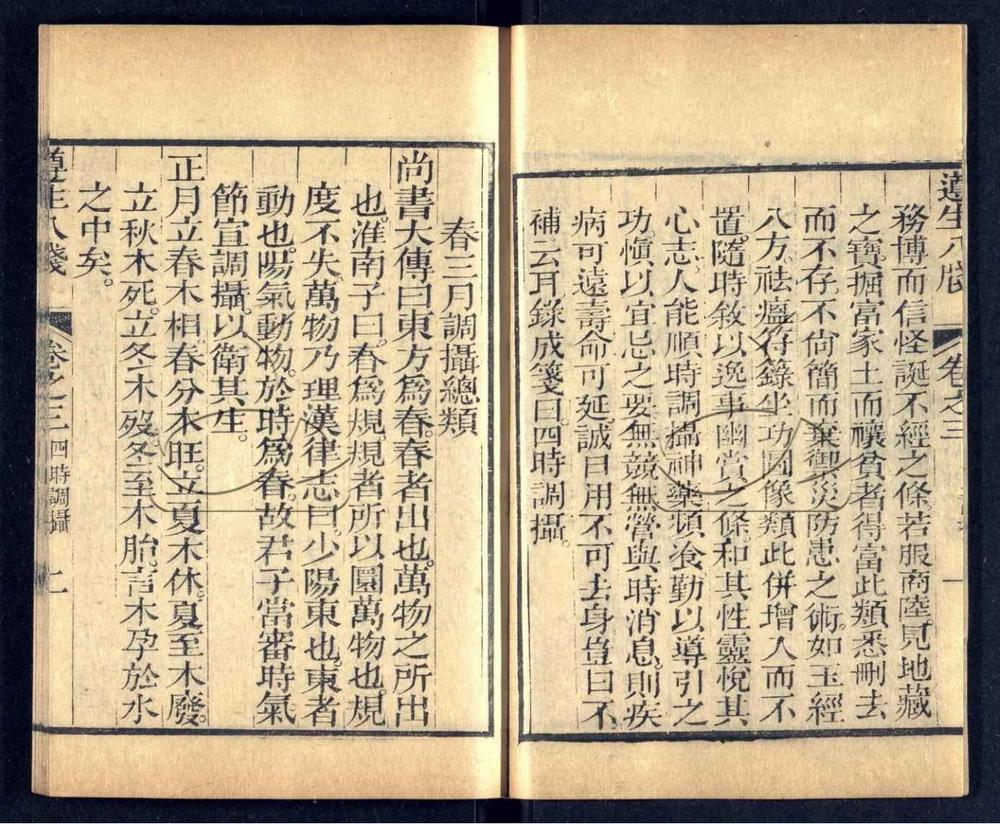 遵生八牋 卷之三 一
務博而信怪誕不經之條若服商陸見地藏
之寶掘富家土而禳貧者得富此類悉刪去
而不存不尚簡而棄禦災防患之術如玉經
八方祛瘟符錄坐功圖像類此併增入而不
置隨時敘以逸事幽賞之條和其性靈悅其
心志人能順時調攝神藥頻飡勤以導引之
功愼以宜忌之要無競無營與時消息則疾
病可遠壽命可延誠日用不可去身豈曰不
補云耳錄成箋曰四時調攝。
春三月調攝總類
尚書大傳曰東方爲春春者出也萬物之所出
也。淮南子曰。春爲規。規者所以圜萬物也。規
度不失。萬物乃理漢律志曰。少陽東也。東者
動也。陽氣動物。於時爲春。故君子當審時氣
節宣調攝。以衛其生。
正月立春木相。春分木旺。立夏木休。夏至木廢。
立秋木死。立冬木歿。冬至木胎。言木孕於水
之中矣。
遵生八牋 卷之三 四時調攝 二